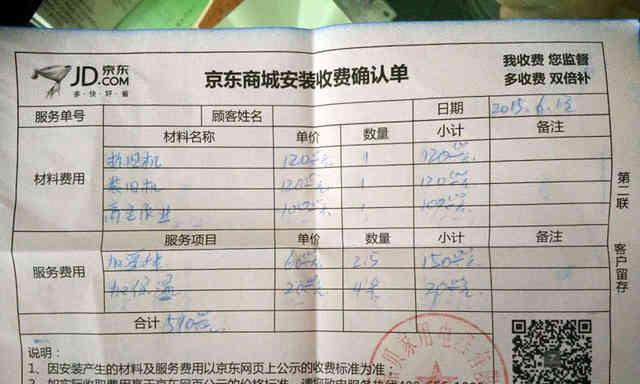 JD 京东
.COM
多·快·好·省
京东商城安装收费确认单
我收费 您监督
多收费 双倍补
服务单号 顾客姓名 日期 2015.6.
材料名称 单价 数量 小计 备注
材料费用
拆旧机 120元 1 120元
装旧机 120元 1 120元
高空作业 100元 1 100元
第二联
服务项目 单价 数量 小计 备注
服务费用
60元 2.5 150元
加保温 20元 4米
客户留存
合计 590元
说明：
1、因安装产生的材料及服务费用以京东网页上公示的收费标准为准；
家用电器有限